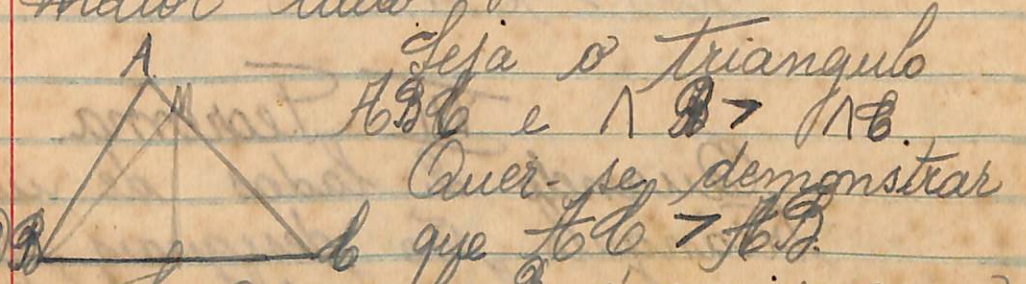 maior
A
Seja o triangulo
M
ABC e ∧ B > ∧ C.
Quer-se demonstrar
B C que AC > AB.